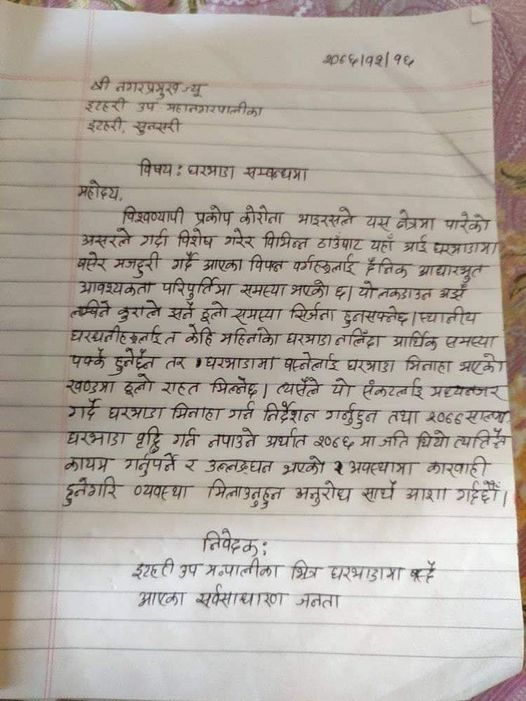 २०७६/१२/१६
श्री नगरप्रमुखज्यू
इटहरी उप महानगरपालीका
इटहरी, सुनसरी
विषय: घरभाडा सम्बन्धमा
महोदय,
विश्वव्यापी प्रकोप कोरोना भाइरसले यस क्षेत्रमा पारेको
असरले गर्दा विशेष गरेर विभिन्न ठाउँबाट यहाँ आई घरभाडामा
बसेर मजदुरी गर्दै आएका विपन्न वर्गहरुलाई दैनिक आधारभुत
आवश्यकता परिपुर्तिमा समस्या भएको छ। यो लकडाउन अझै
लम्बिने कुराले सर्ने ठूलो समस्या सिर्जना हुनसक्नेछ। स्थानीय
घरधनीहरुलाई त केहि महिनाका घरभाडा नलिंदा आर्थिक समस्या
पक्कै हुनेछैन तर घरभाडामा बस्नेलाई घरभाडा मिनाहा भएको
खण्डमा ठूलो राहत मिल्नेछ। त्यसैले यो संकटलाई मध्यनजर
गर्दै घरभाडा मिनाहा गर्न निर्देशन गर्नुहुन तथा २०७७ सालमा
घरभाडा वृद्धि गर्न नपाउने अर्थात २०७६ मा जति थियो त्यतिनै
कायम गर्नुपर्ने र उल्लङ्घन भएको अवस्थामा कारवाही
हुनेगरि व्यवस्था मिलाउनुहुन अनुरोध साथै आशा गर्दछौं।
निवेदक:
इटहरी उप म.पालीका भित्र घरभाडामा बस्दै
आएका सर्वसाधारण जनता